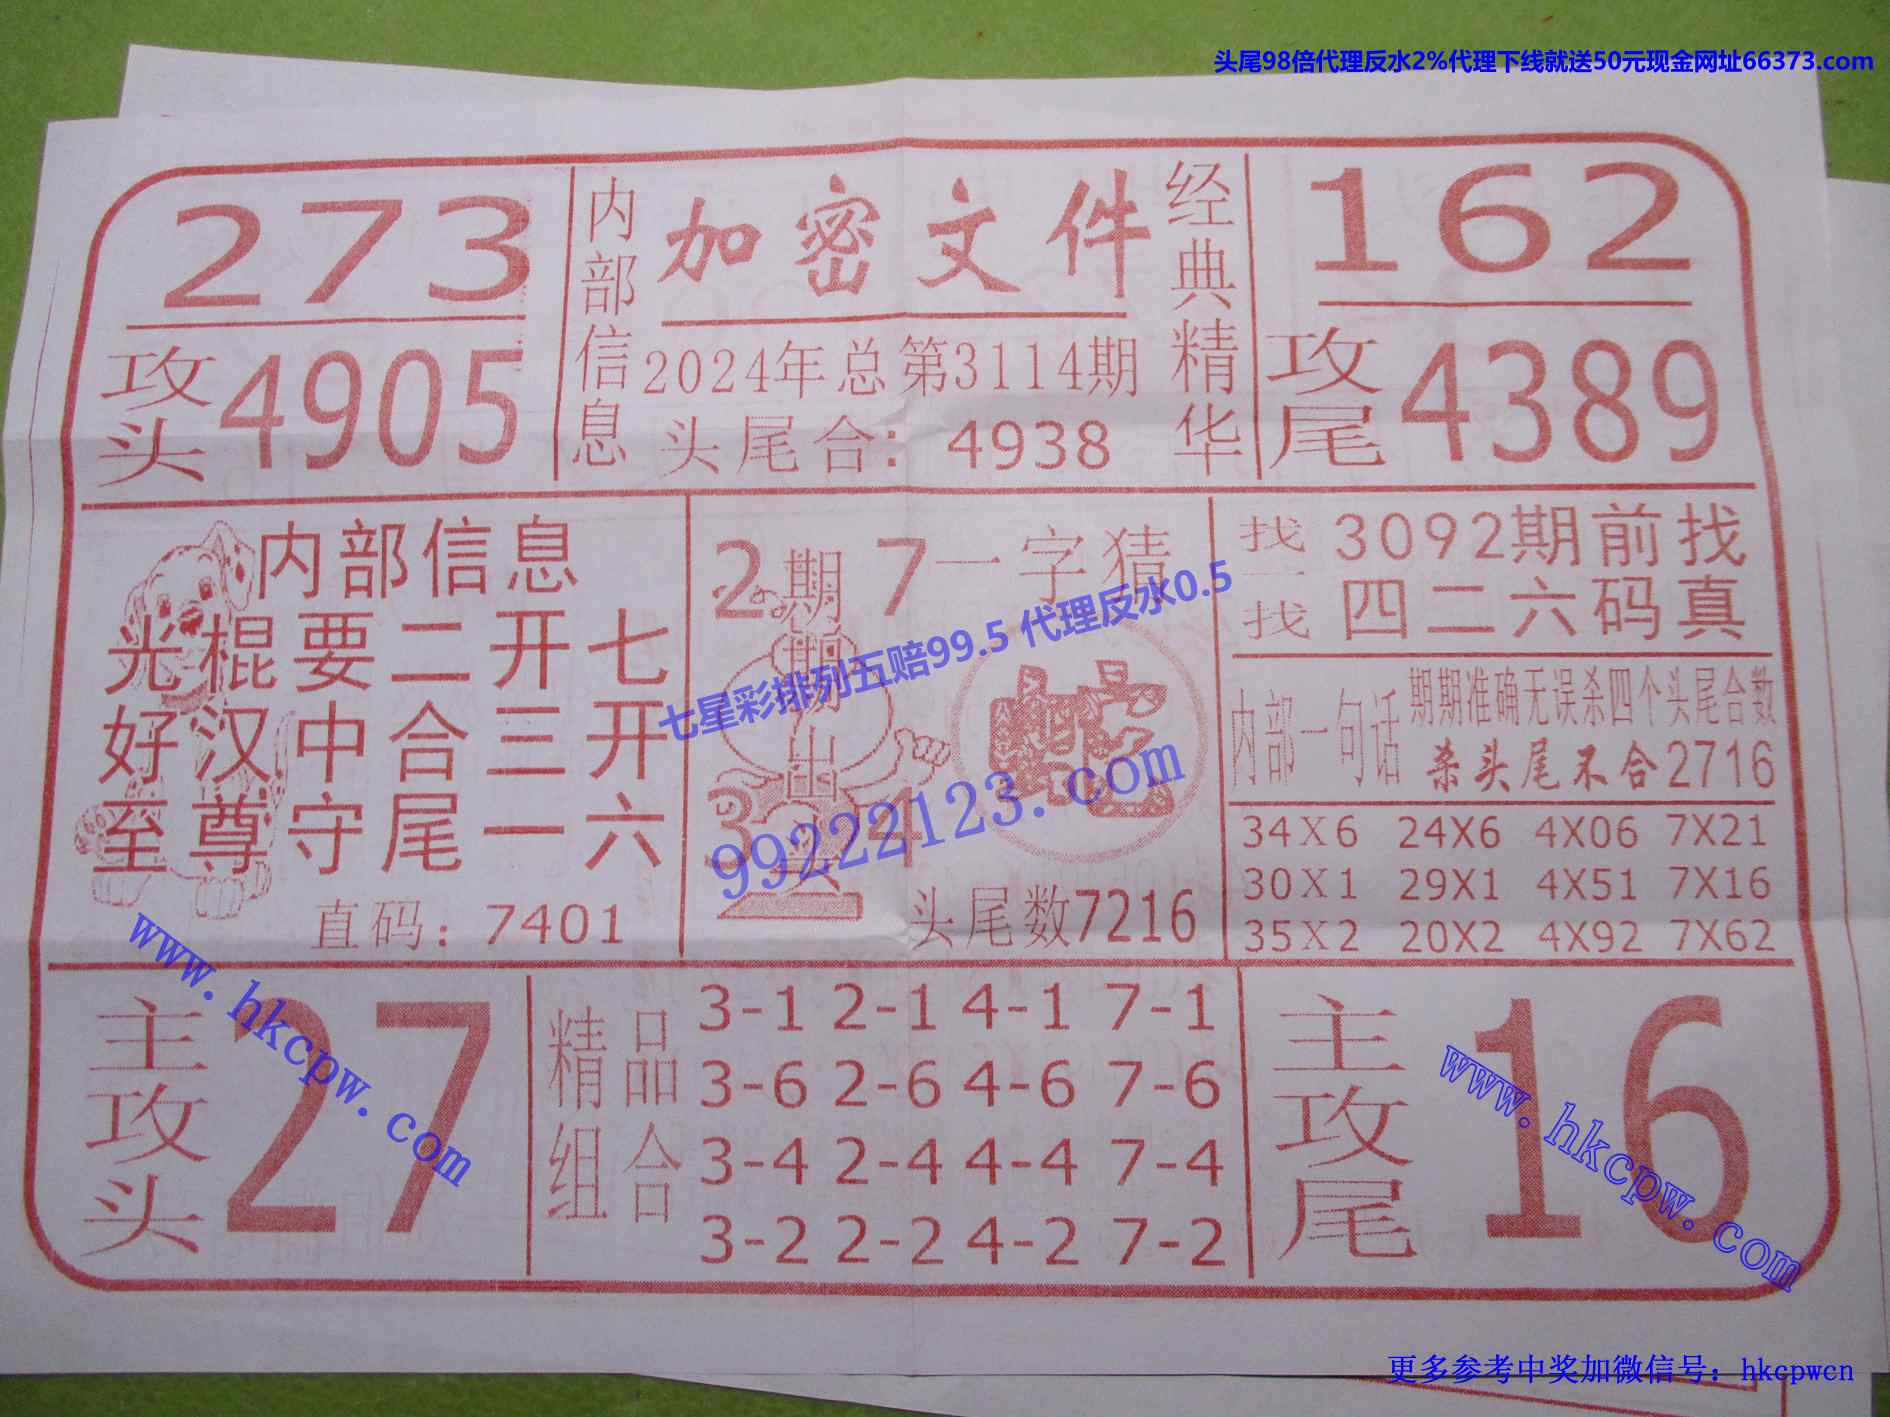 头尾98倍代理反水2%代理下线就送50元现金网址66373.com
273
攻头 4905
内部信息
加密文件
2024年总第3114期
头尾合: 4938
经典精华
162
攻尾 4389
内部信息
光棍要二开七
好汉中合三开
至尊守尾一六
直码: 7401
2 7
期期出
3 4
一字猜
头尾数7216
找一找
3092期前找
四二六码真
内部一句话
期期准确无误杀四个头尾合数
杀头尾不合2716
34X6 24X6 4X06 7X21
30X1 29X1 4X51 7X16
35X2 20X2 4X92 7X62
七星彩排列五赔99.5 代理反水0.5
99222123.com
主攻头
27
精品组合
3-1 2-1 4-1 7-1
3-6 2-6 4-6 7-6
3-4 2-4 4-4 7-4
3-2 2-2 4-2 7-2
主攻尾
16
www.hkcpw.com
www.hkcpw.com
更多参考中奖加微信号: hkcpwcn